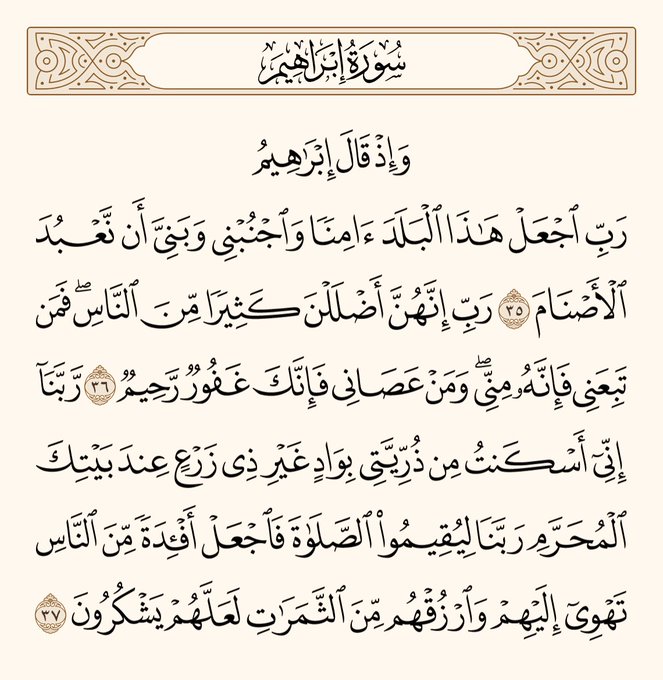 سُورَةُ إِبْرَاهِيمَ
وَإِذْ قَالَ إِبْرَٰهِيمُ
رَبِّ ٱجْعَلْ هَـٰذَا ٱلْبَلَدَ ءَامِنًا وَٱجْنُبْنِى وَبَنِىَّ أَن نَّعْبُدَ
ٱلْأَصْنَامَ ٣٥ رَبِّ إِنَّهُنَّ أَضْلَلْنَ كَثِيرًا مِّنَ ٱلنَّاسِ ۖ فَمَن
تَبِعَنِى فَإِنَّهُۥ مِنِّى ۖ وَمَنْ عَصَانِى فَإِنَّكَ غَفُورٌ رَّحِيمٌ ٣٦ رَّبَّنَآ
إِنِّىٓ أَسْكَنتُ مِن ذُرِّيَّتِى بِوَادٍ غَيْرِ ذِى زَرْعٍ عِندَ بَيْتِكَ
ٱلْمُحَرَّمِ رَبَّنَا لِيُقِيمُوا۟ ٱلصَّلَوٰةَ فَٱجْعَلْ أَفْـِٔدَةً مِّنَ ٱلنَّاسِ
تَهْوِىٓ إِلَيْهِمْ وَٱرْزُقْهُم مِّنَ ٱلثَّمَرَٰتِ لَعَلَّهُمْ يَشْكُرُونَ ٣٧